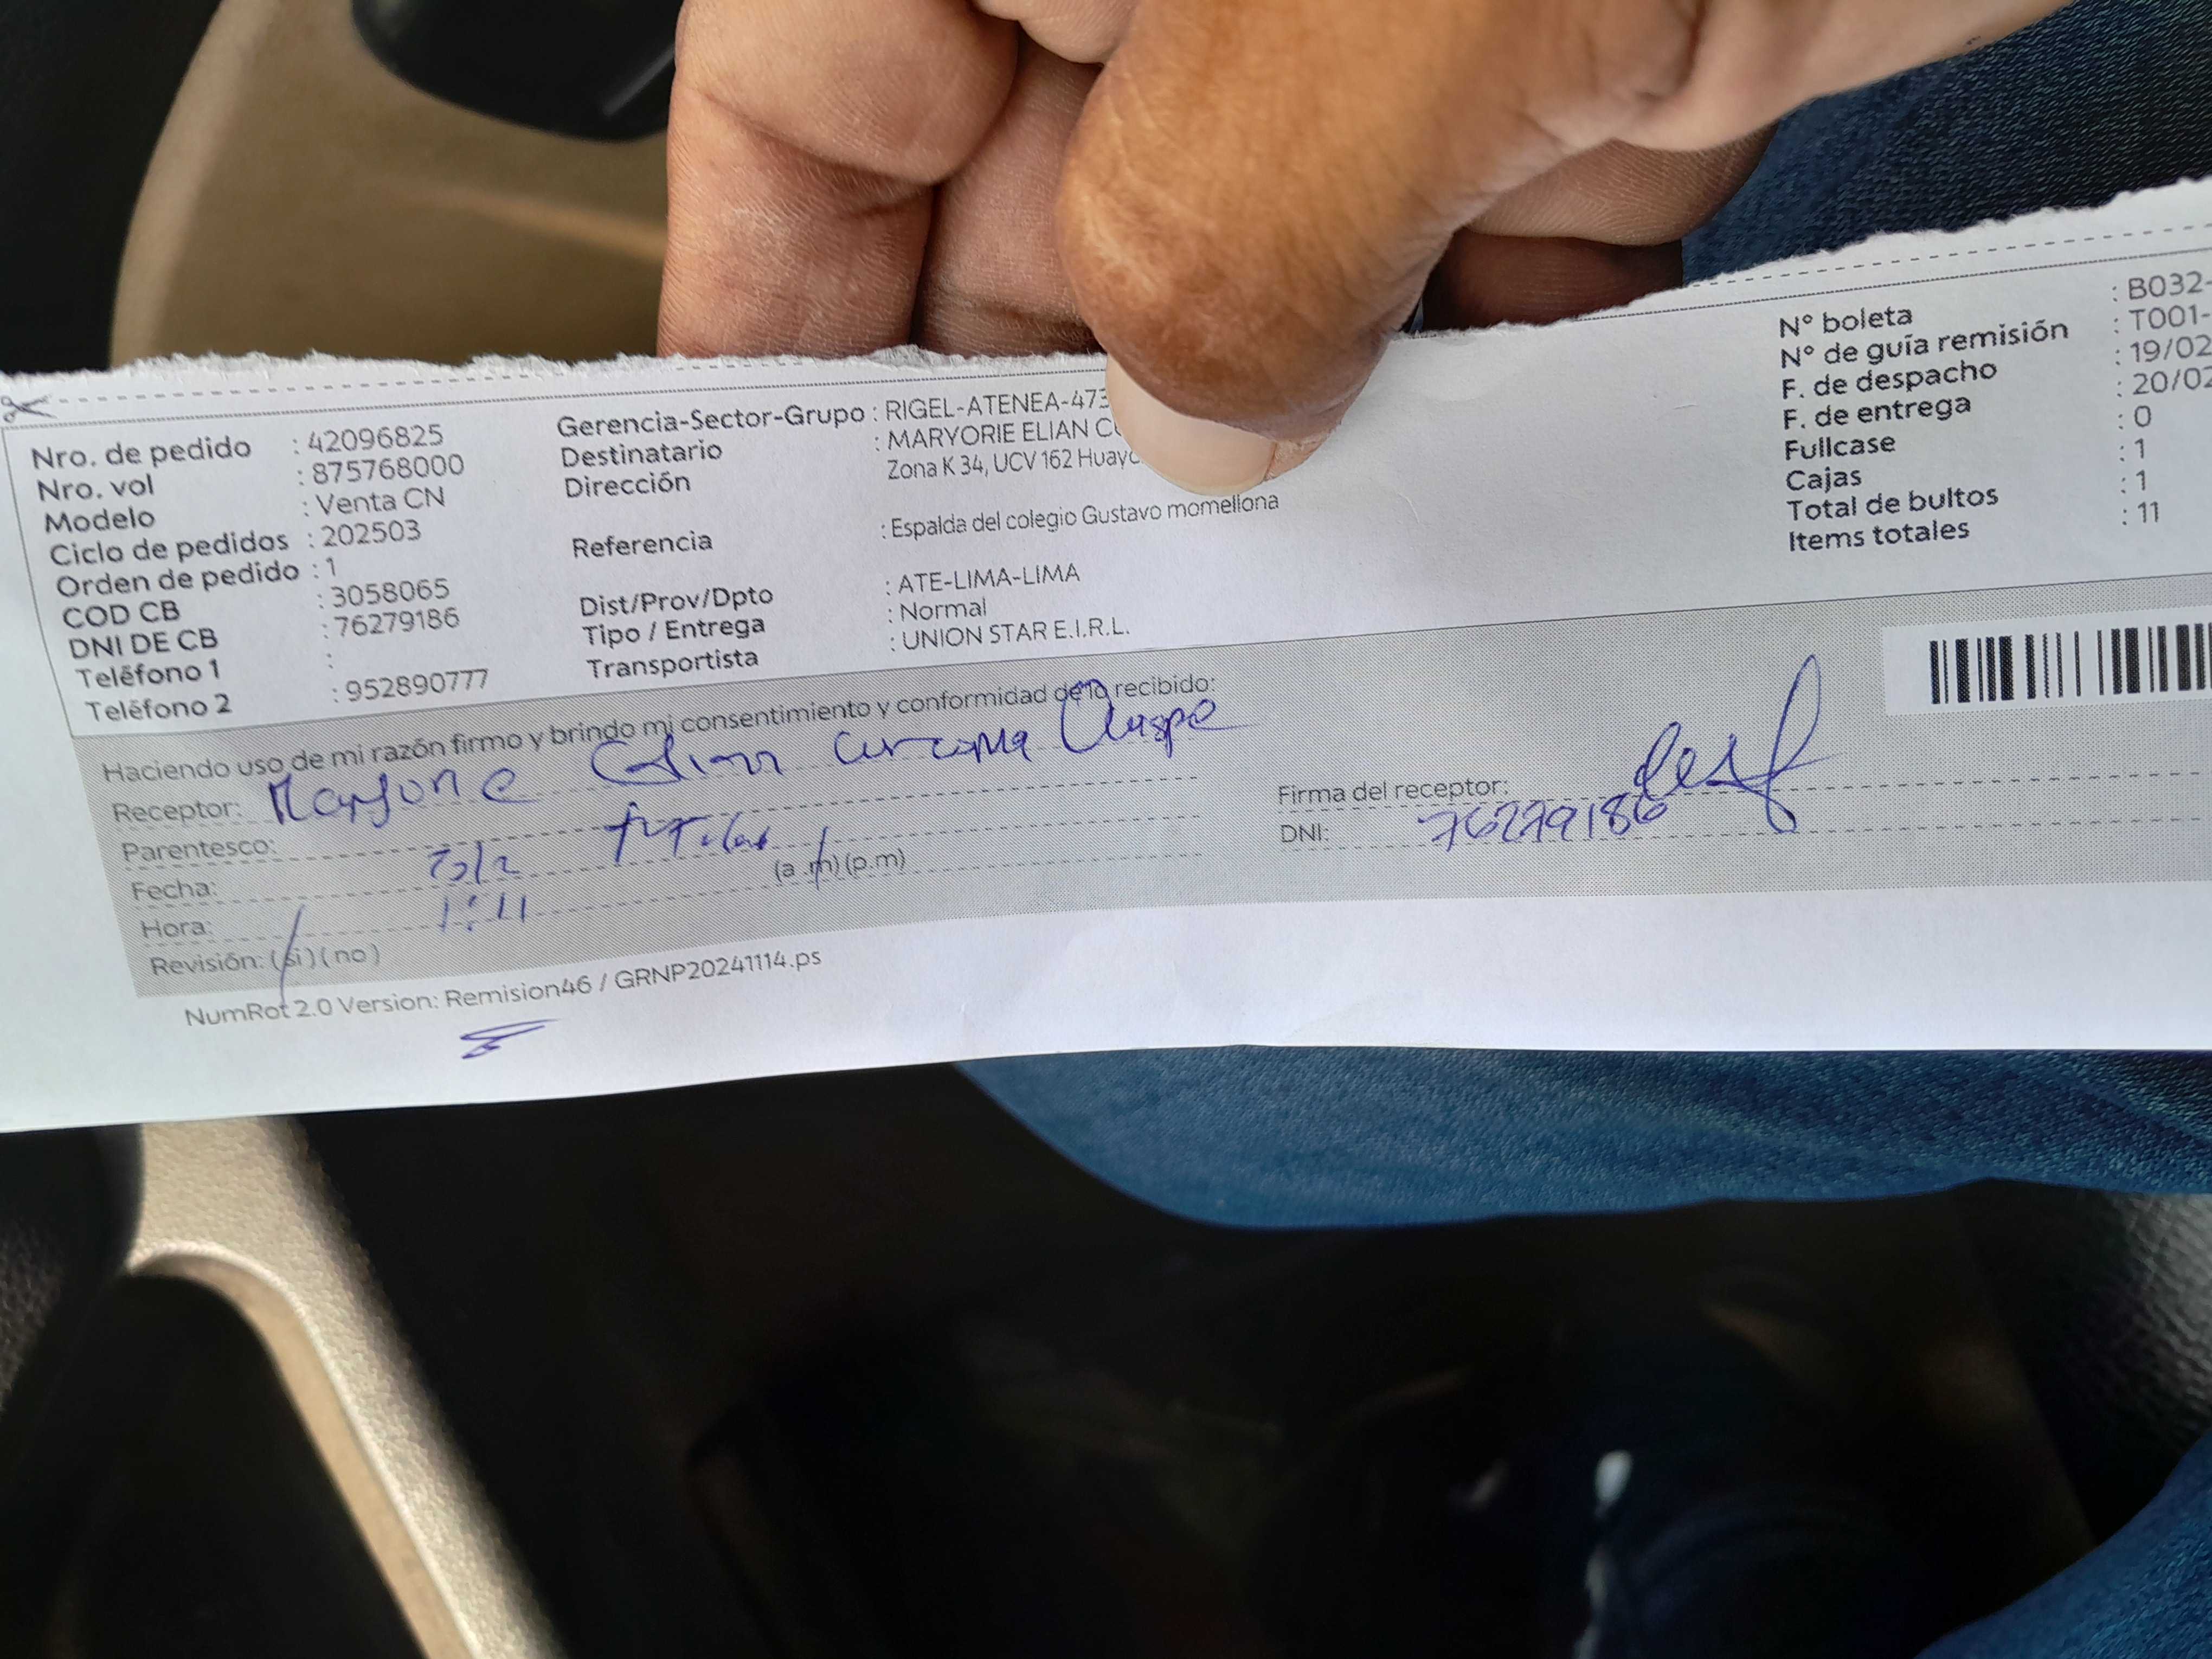 Nro. de pedido : 42096825
Nro. vol : 875768000
Modelo : Venta CN
Ciclo de pedidos : 202503
Orden de pedido : 1
COD CB : 3058065
DNI DE CB : 76279186
Teléfono 1 :
Teléfono 2 : 952890777
Gerencia-Sector-Grupo : RIGEL-ATENEA-473
Destinatario : MARYORIE ELIAN
Dirección Zona K 34, UCV 162
Referencia : Espalda del colegio Gustavo momellona
Dist/Prov/Dpto : ATE-LIMA-LIMA
Tipo / Entrega : Normal
Transportista : UNION STAR E.I.R.L.
N° boleta : B032-
N° de guía remisión : T001-
F. de despacho : 19/02
F. de entrega : 20/02
Fullcase : 0
Cajas : 1
Total de bultos : 1
Items totales : 11
Haciendo uso de mi razón firmo y brindo mi consentimiento y conformidad de lo recibido:
Receptor:
Parentesco:
Fecha:
Hora: (a.m)(p.m)
Revisión: (si)(no)
Firma del receptor:
DNI: 76279186
NumRot 2.0 Version: Remision46 / GRNP20241114.ps